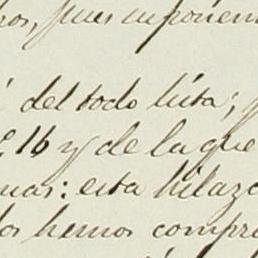 pues imponen
del todo lista;
16 y de la que
mas: esta hilaza
los hemos compr